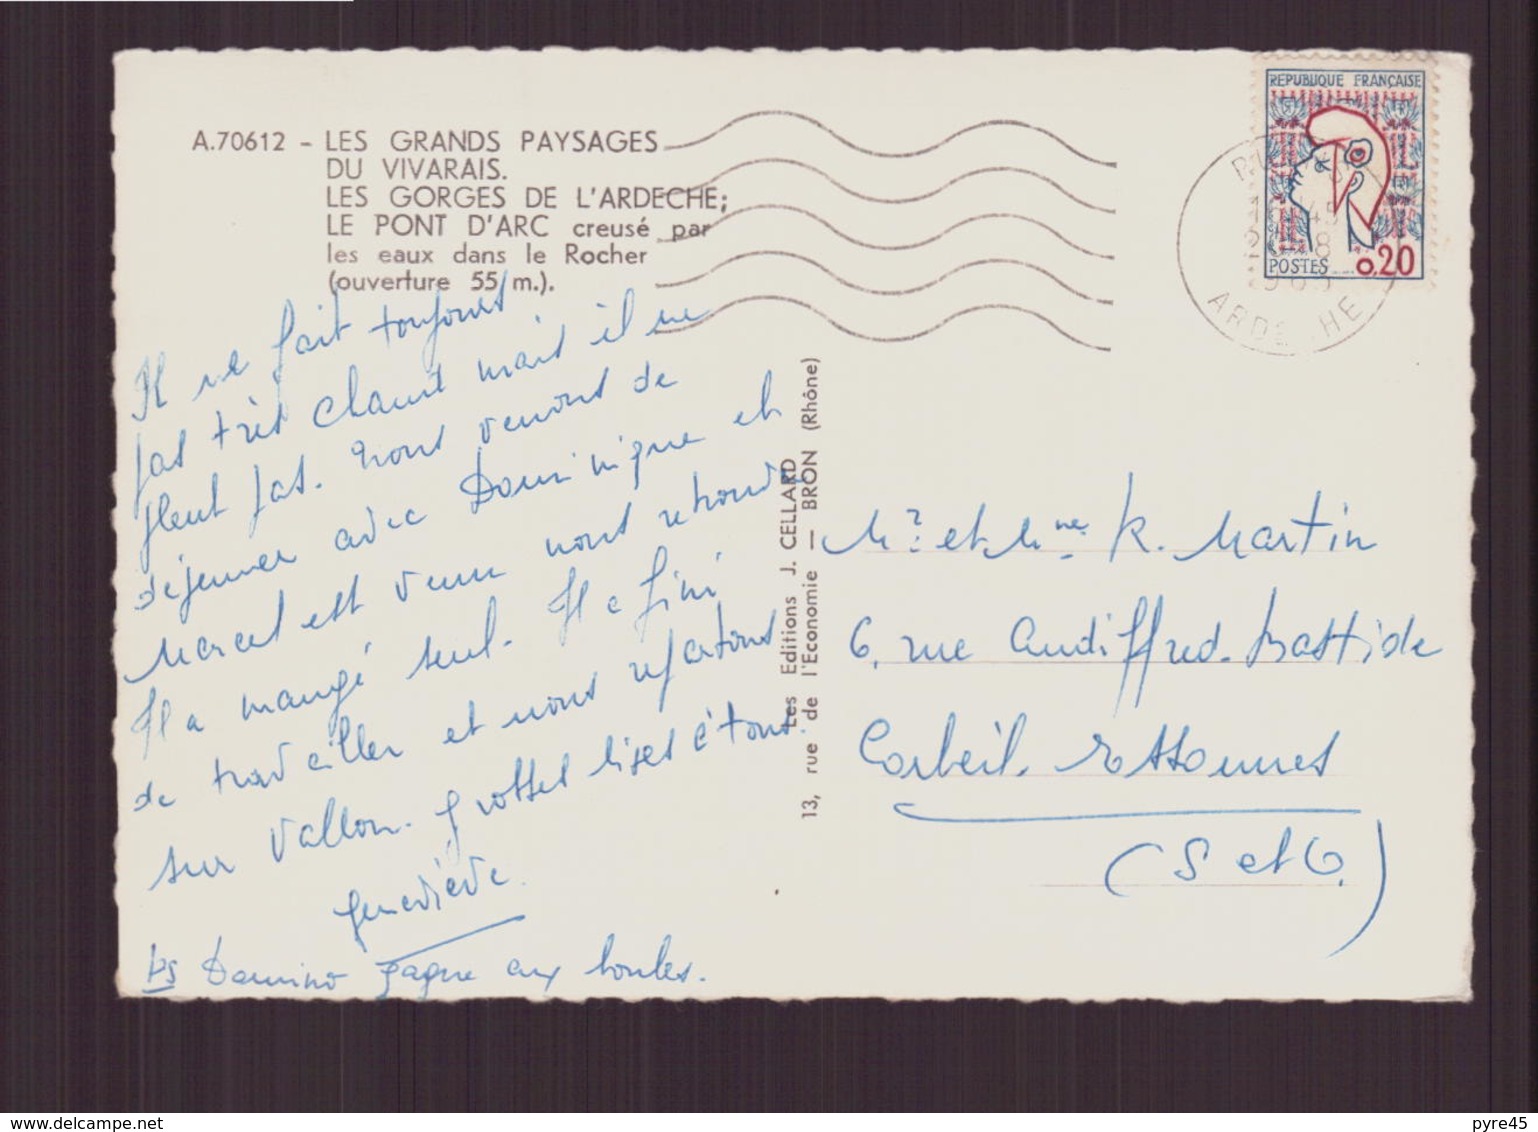 A.70612 - LES GRANDS PAYSAGES
DU VIVARAIS.
LES GORGES DE L'ARDECHE;
LE PONT D'ARC creusé par
les eaux dans le Rocher
(ouverture 55 m.).
REPUBLIQUE FRANÇAISE
POSTES 0,20
ARDECHE
Il ne fait toujours
pas très chaud mais il ne
pleut pas. Nous venons de
déjeuner avec Dominique et
Marcel est venu nous retrouver
Il a mangé seul. Il a fini
de travailler et nous repartons
sur Vallon. Grosses bises à tous.
Geneviève.
PS Domino gagne aux boules.
Les Editions J. CELLARD
13, rue de l'Economie — BRON (Rhône)
Mr et Mme R. Martin
6, rue Audiffred-Bastide
Corbeil-Essonnes
(S et O)
www.delcampe.net
pyre45